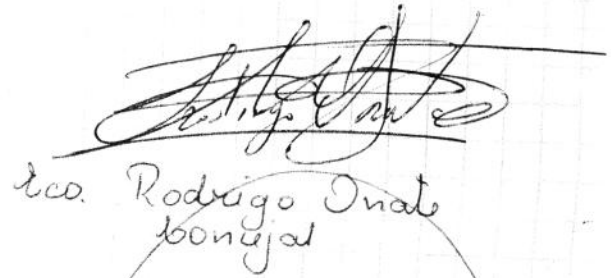 Rodrigo Oñate
Eco. Rodrigo Onate
Concejal